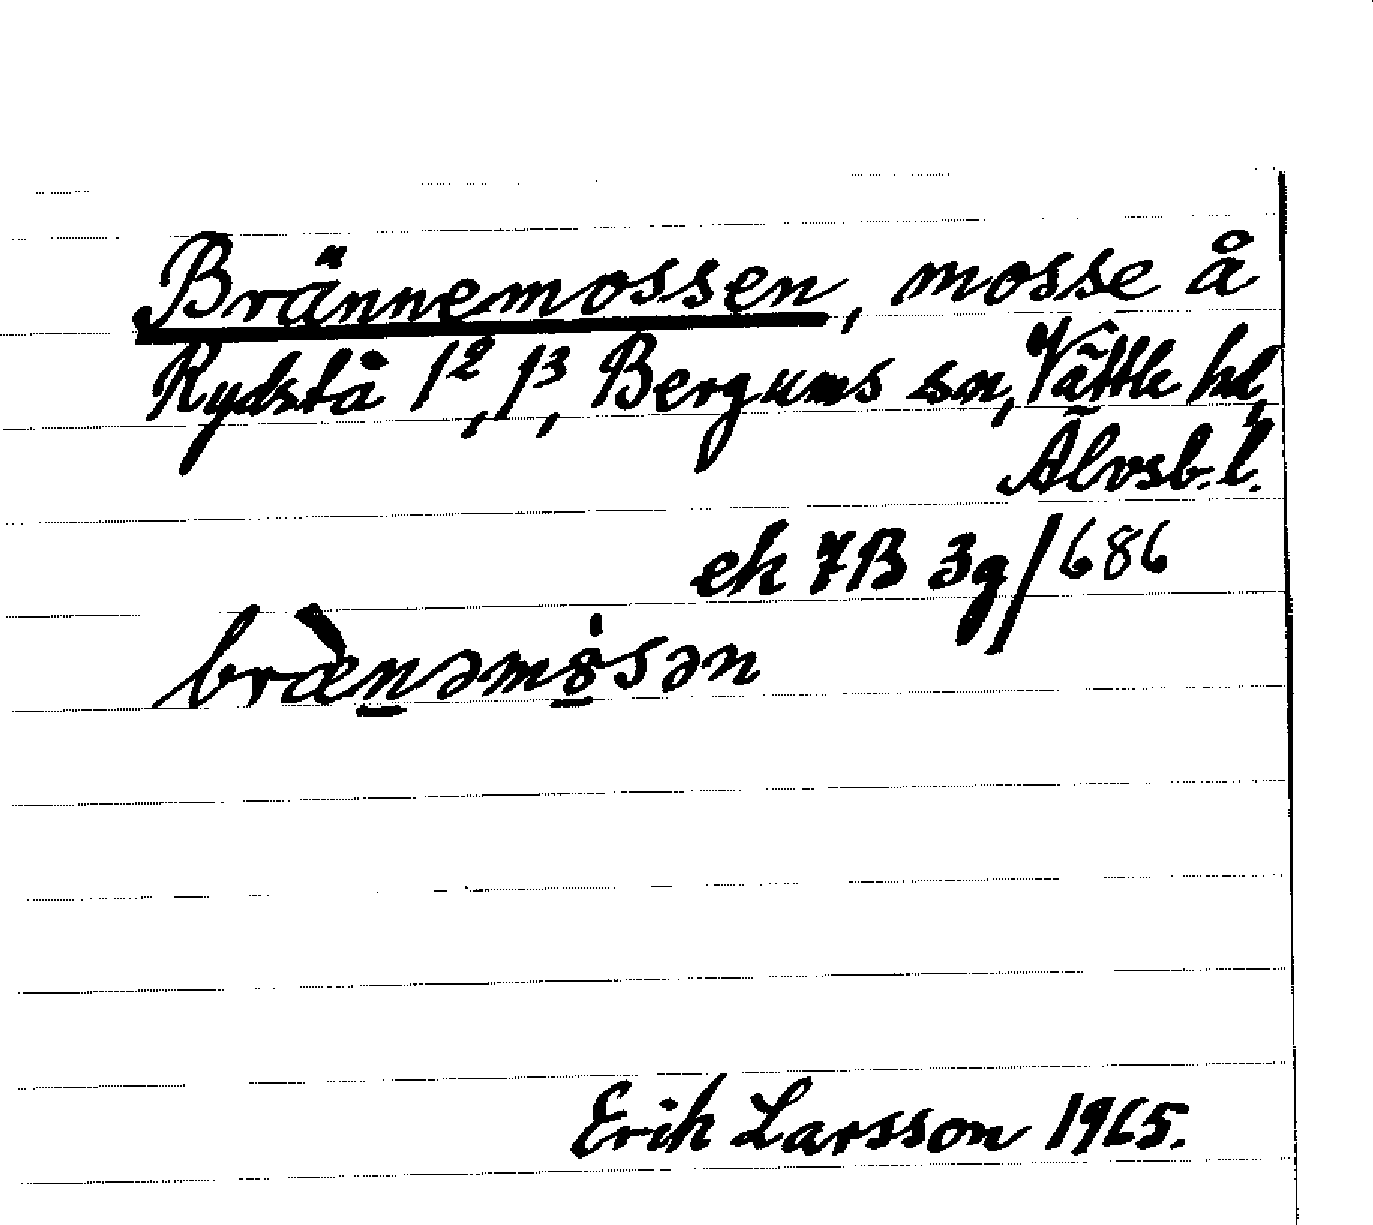 Brännemossen, mosse å
Rydstå 1², 1³, Bergums sn, Vättle hd,
Älvsb. l.
ek 7B 3g/686
bræ̀n̲əmo̲sən
Erik Larsson 1965.